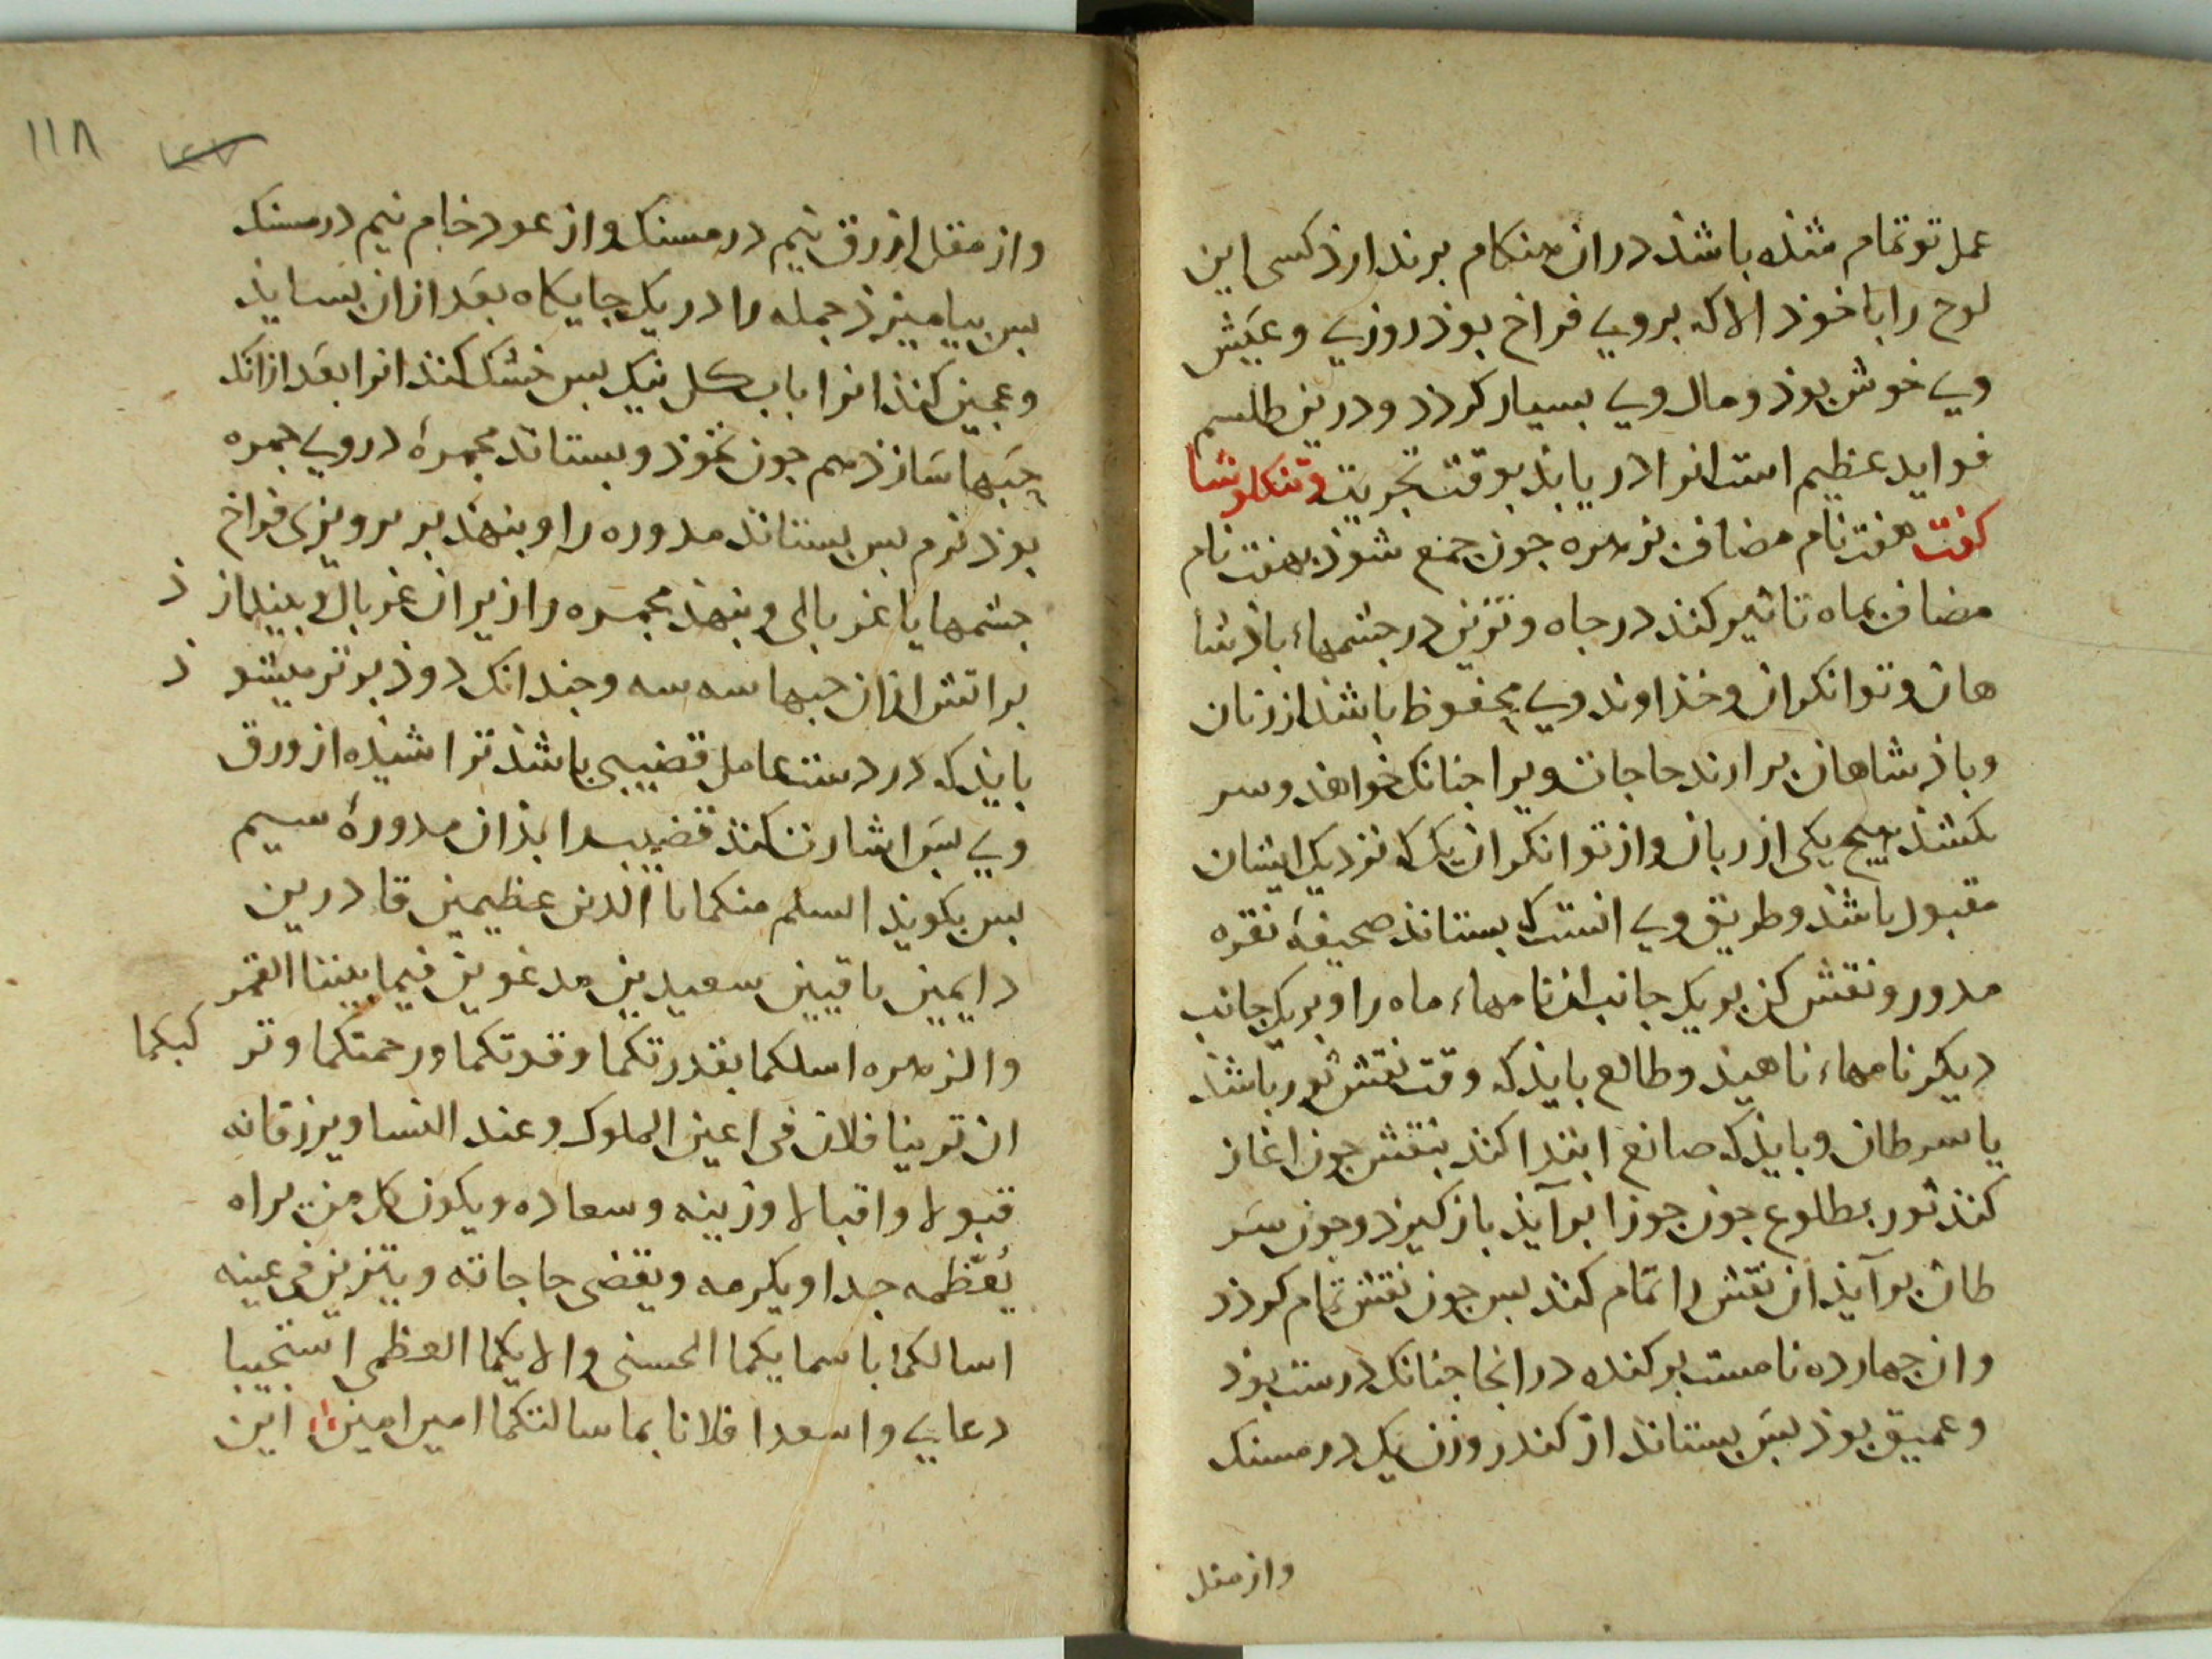 عمل تو تمام شذه باشذ در ان هنكام برندارذ كسى اين
لوح را با خوذ الا كه بروى فراخ بوذ روزى و عيش
وى خوش بوذ و مال وى بسيار كردد و درين طلسم
فوايد عظيم است انرا دريابذ بوقت تجربت و تنكلوشا
كفت هفت نام مضاف بزهره جون جمع شوذ بهفت نام
مضاف بماه تاثير كنذ در جاه و تزين در جشمهاء باذشا
هان و توانكران و خذاوند وى محفوظ باشذ از زنان
و باذشاهان برارند حاجات ويرا جنانك خواهذ و سر
نكشذ هيج يكى از زنان و از توانكران يك كه نزديك ايشان
مقبول باشذ و طريق وى انست كه بستاند صحيفهٔ نقره
مدور و نقش كن بر يك جانب از نامهاء ماه را و بر يك جانب
ديكر نامهاء ناهيذ و طالع بايذ كه وقت نقش ثور باشذ
يا سرطان و بايذ كه صانع ابتدا كند بنقش جون اغاز
كنذ ثور بطلوع جون جوزا برآيذ باز كيرد و جون سر
طان برآيذ ان نقش را تمام كند بس جون نقش تمام كردد
و ان جهارده نامست بركنده در انجا جنانك درست بوذ
و عميق بوذ بس بستاند از كندر وزن يك درمسنك
واز مقل
١١٨
واز مقل ازرق نيم درمسنك و از عود خام نيم درمسنك
بس بياميزذ جمله را در يك جايكاه بعد از ان بسايذ
و عجين كنذ انرا باب كل نيك بس خشك كنذ انرا بعد از انك
حبها سازذ هم جون نخوذ و بستاند مجمرهٔ در وى جمره
بوذ نرم بس بستاند مدوره را و بنهذ بر پرويزى فراخ
جشمها يا غربالى و بنهذ مجمره را زير ان غربال و بينداز ذ
بر اتش از ان حبها سه سه و جندانك دوذ برتر ميشو ذ
بايذ كه در دست عامل قضيبى باشذ تراشيذه از ورق
وى بس اشارت كنذ قضيب را بذان مدورهٔ سيم
بس بكويذ السلم منكما يا الذين عظيمين قادرين
دايمين باقيين سعيدين مدعوين فيما بيننا القمر
والزهره اسلكما بقدرتكما و قدتكما و رحمتكما وتر كبكما
ان تزينا فلان فى اعين الملوك و عند النسا و يرزقانه
قبولا و اقبالا و زينه و سعاده و يكون كل من يراه
يُعظمه جدا و يكرمه و يقضى حاجاته و يتزين فى عينه
اسالكما باسمايكما الحسنى و الايكما العظمى استجيبا
دعايى و اسعدا فلانا بما سالتكما امين امين اين